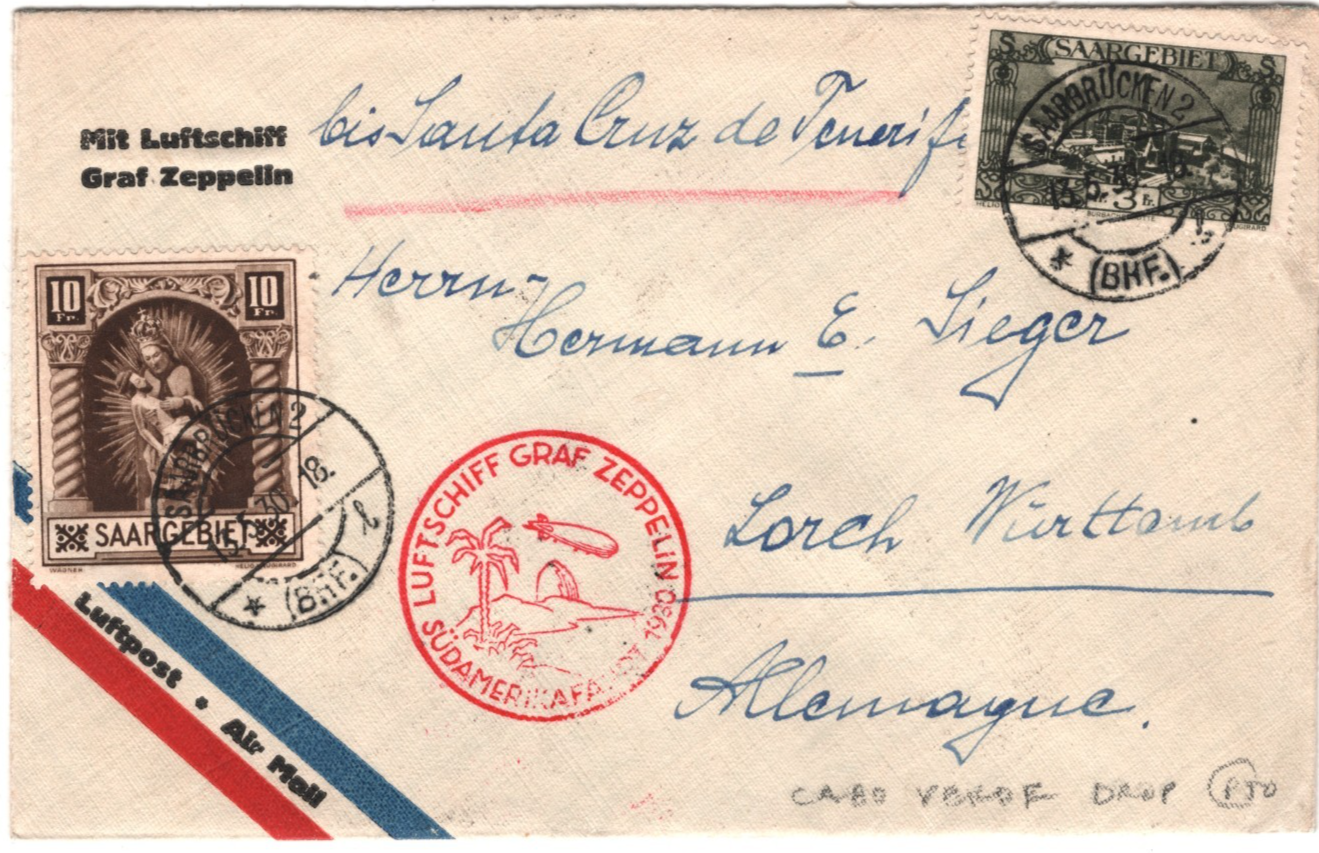 Mit Luftschiff
Graf Zeppelin
bis Santa Cruz de Tenerife
SAARGEBIET
3 Fr.
SAARBRÜCKEN 2
13.5.30. 18.
* (BHF.)
10 Fr.
10 Fr.
SAARGEBIET
WAGNER
SAARBRÜCKEN 2
13.5.30. 18.
* (BHF.) l
Herrn
Hermann E. Sieger
Lorch Württemb
Allemagne.
LUFTSCHIFF GRAF ZEPPELIN
SÜDAMERIKAFAHRT 1930
Luftpost • Air Mail
CABO VERDE DROP PTO